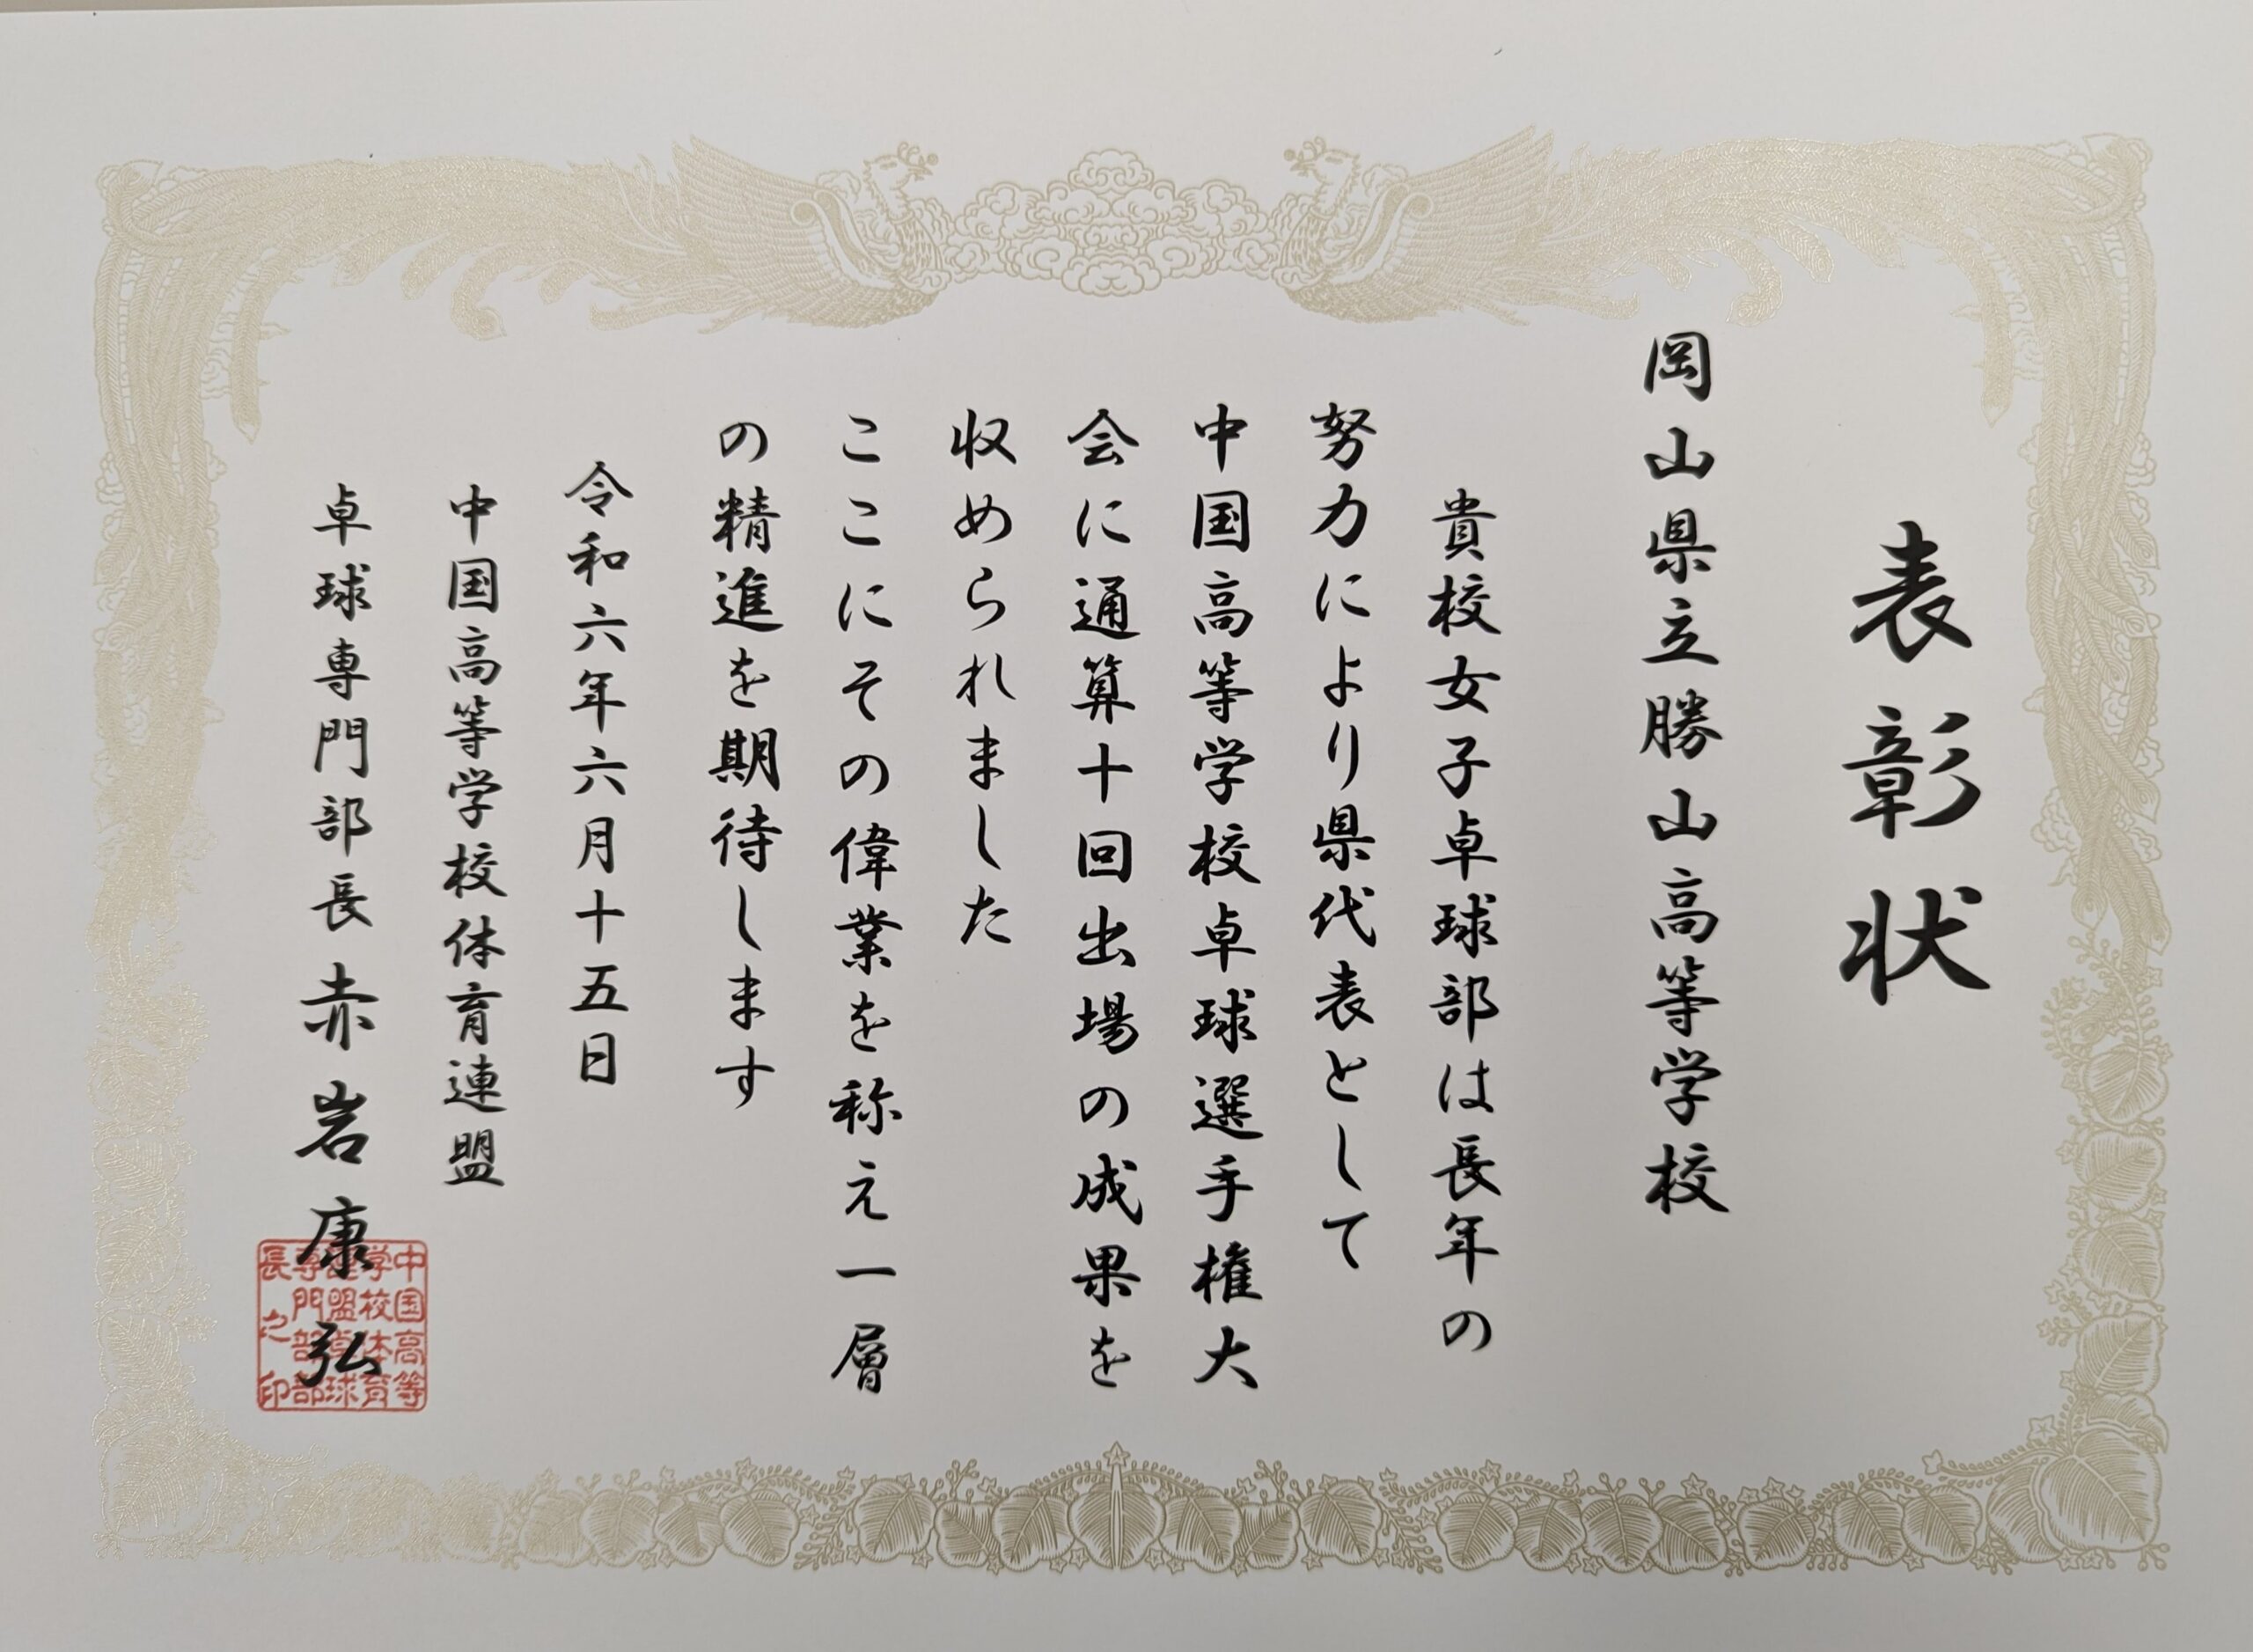 表彰状
岡山県立勝山高等学校
貴校女子卓球部は長年の
努力により県代表として
中国高等学校卓球選手権大
会に通算十回出場の成果を
収められました
ここにその偉業を称え一層
の精進を期待します
令和六年六月十五日
中国高等学校体育連盟
卓球専門部長 赤岩康弘
中国高等
学校体育
連盟卓球
専門部部
長之印